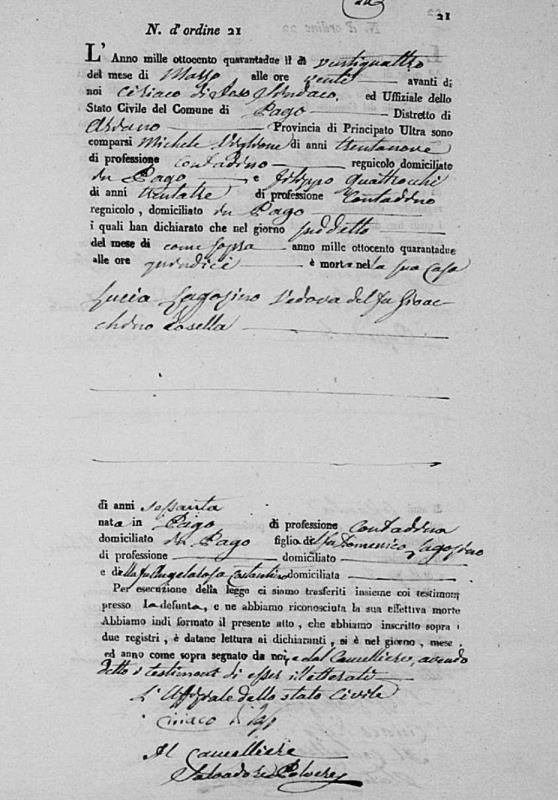 21
N. d'ordine 21
L'Anno mille ottocento quarantadue il dì ventiquattro
del mese di Marzo alle ore venti avanti di
noi Ciriaco di Sindaco, ed Uffiziale dello
Stato Civile del Comune di Pago Distretto di
Ariano Provincia di Principato Ultra sono
comparsi Michele di anni trentanove
di professione contadino regnicolo domiciliato
in Pago e Filippo Quattrocchi
di anni trentatre di professione Contadino
regnicolo, domiciliato in Pago
i quali han dichiarato che nel giorno suddetto
del mese di come sopra anno mille ottocento quarantadue
alle ore quindici è morta nella sua casa
Lucia Vedova del fu Gioac-
chino
di anni sessanta
nata in Pago di professione contadina
domiciliato in Pago figlia di fu Domenico
di professione domiciliato
e della fu Angelarosa Costantino domiciliata
Per esecuzione della legge ci siamo trasferiti insieme coi testimonj
presso la defunta, e ne abbiamo riconosciuta la sua effettiva morte
Abbiamo indi formato il presente atto, che abbiamo inscritto sopra i
due registri, è datane lettura ai dichiaranti, si è nel giorno, mese
ed anno come sopra segnato da noi, e dal Cancelliere, avendo
detto i testimoni di esser illetterati
L'Uffiziale dello stato Civile
Ciriaco di
Il Cancelliere
Salvadore Polvere